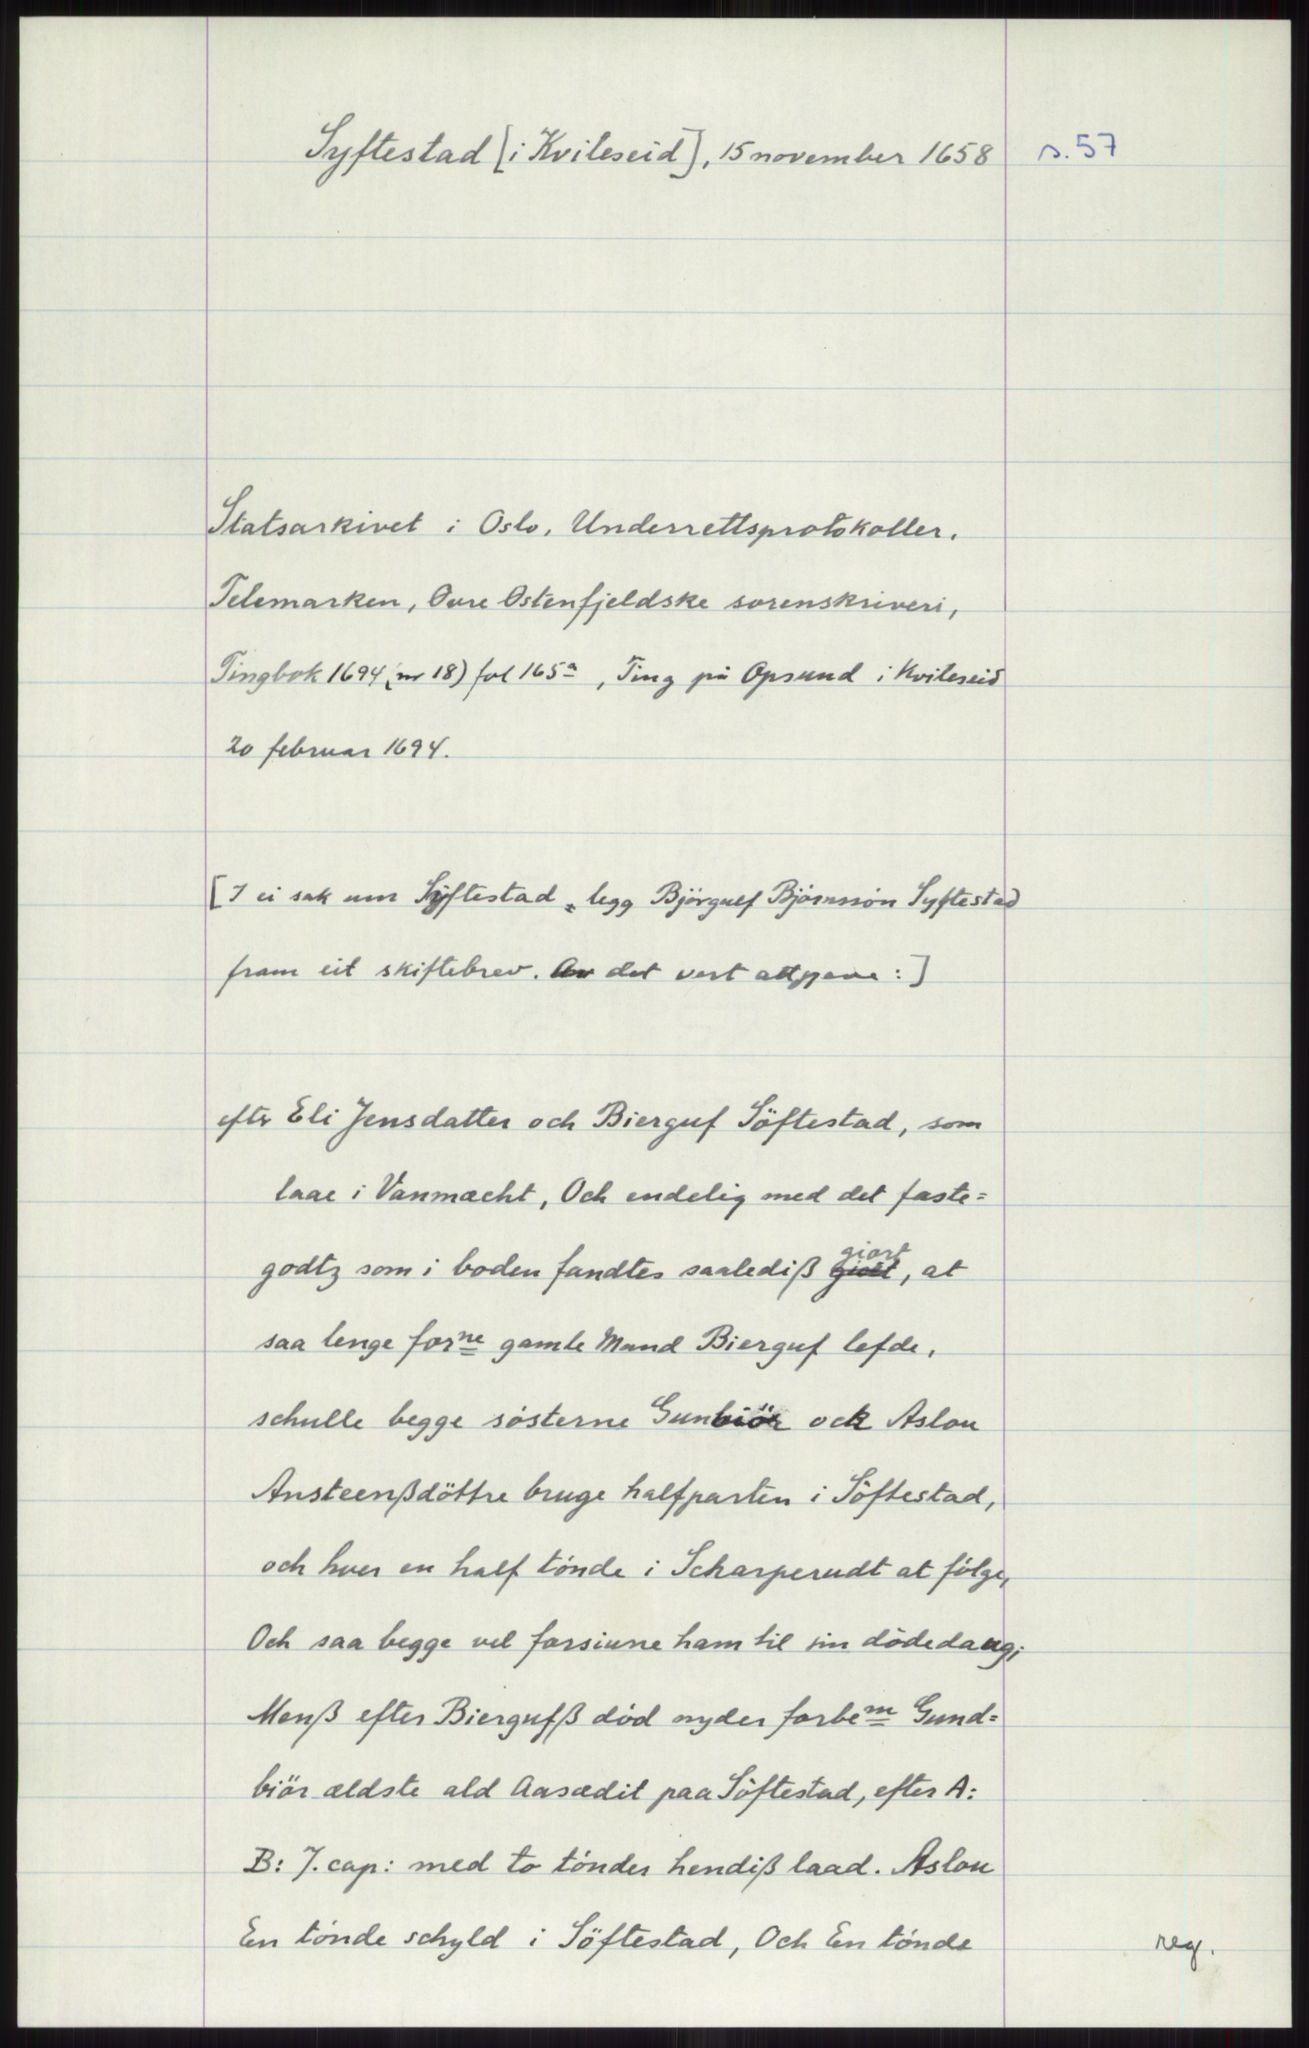 Syftestad [i Kviteseid], 15 november 1658 s. 57
Statsarkivet i Oslo. Underrettsprotokoller.
Telemarken, Øvre Østenfjeldske sorenskriveri,
Tingbok 1694 (nr 18) fol 165a, Ting på Opsund i Kviteseid
20 februar 1694.
[I ei sak um Syftestad legg Bjørgulf Bjørnsson Syftestad
fram eit skiftebrev. Av det vert attgjeve:]
efter Eli Jensdatter och Bierguf Söftestad, som
laae i Vanmacht, Och endelig med det faste=
godtz som i boden fandtes saalediß giort, at
saa lenge forne gamle Mand Bierguf lefde,
schulle begge sösterne Gunbiör och Aslou
Ansteenßdöttre bruge halfparten i Söftestad,
och huer en half tönde i Scharperudt at fölge,
Och saa begge vel forsiune ham til sin dödedaug;
Menß efter Biergufß död nyder forbem Gund=
biör ældste ald Aasædit paa Söftestad, efter A:
B: 7. cap: med to tönder hendiß laad. Aslou
En tönde schyld i Söftestad, Och En tönde
reg.